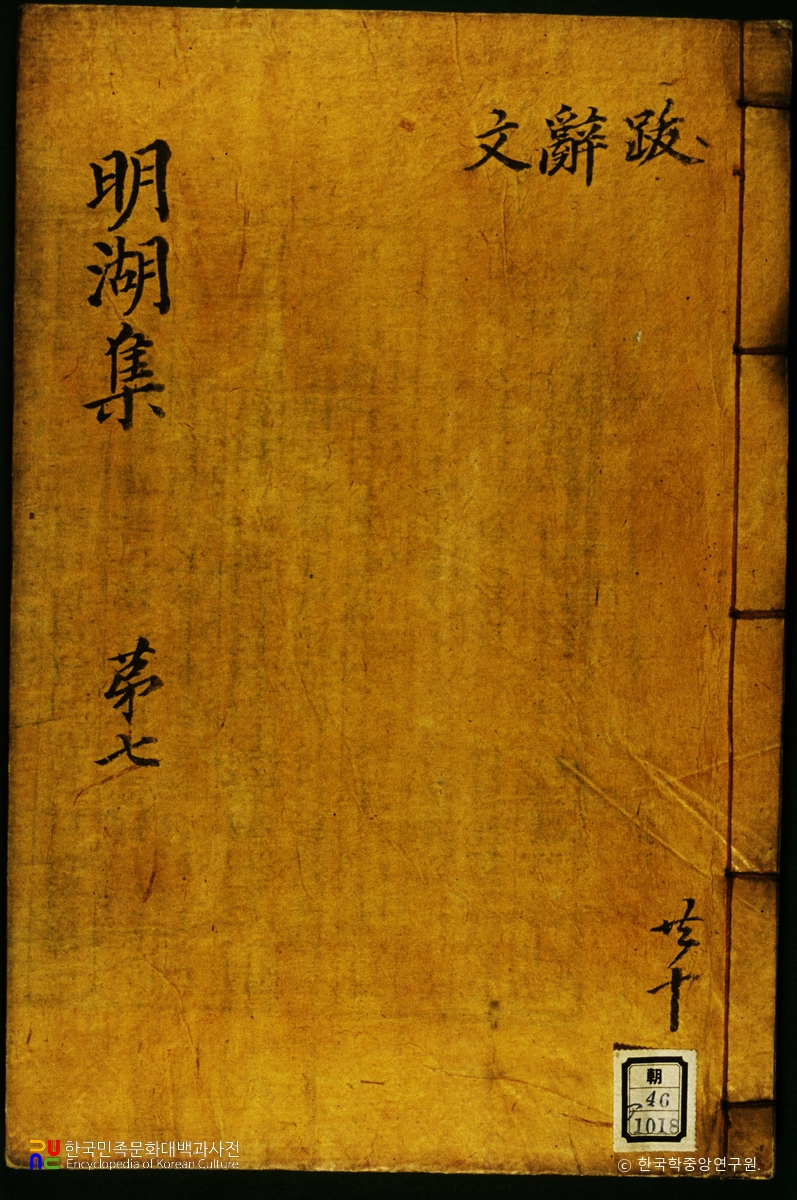 跋辭文
明湖集
第七
共十
朝
46
ア
1018
한국민족문화대백과사전
Encyclopedia of Korean Culture
© 한국학중앙연구원.